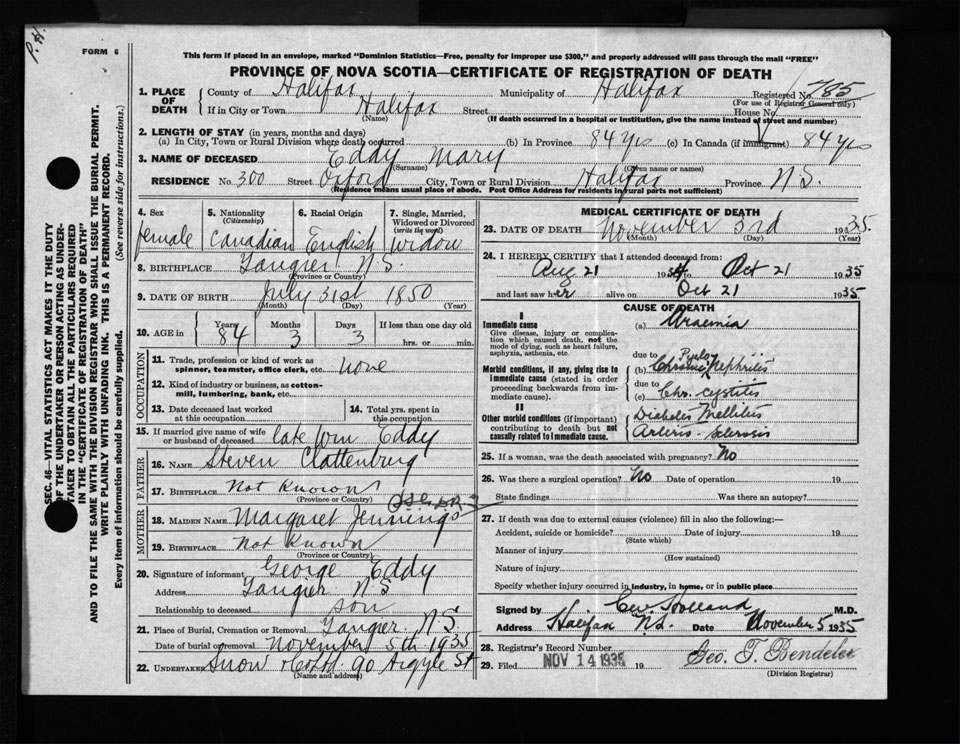 P.H.
FORM 6
This form if placed in an envelope, marked "Dominion Statistics—Free, penalty for improper use $300," and properly addressed will pass through the mail "FREE"
PROVINCE OF NOVA SCOTIA—CERTIFICATE OF REGISTRATION OF DEATH
1. PLACE OF DEATH
County of Halifax Municipality of Halifax Registered No. 785
(For use of Registrar General only)
If in City or Town Halifax Street House No.
(Name) (If death occurred in a hospital or institution, give the name instead of street and number)
2. LENGTH OF STAY (in years, months and days)
(a) In City, Town or Rural Division where death occurred (b) In Province 84 yrs (c) In Canada (if immigrant) 84 yrs
3. NAME OF DECEASED Eddy Mary
(Surname) (Given name or names)
RESIDENCE No. 300 Street Oxford City, Town or Rural Division Halifax Province N.S.
(Residence means usual place of abode. Post Office Address for residents in rural parts not sufficient)
4. Sex
female
5. Nationality
(Citizenship)
Canadian
6. Racial Origin
English
7. Single, Married, Widowed or Divorced
(write the word)
Widow
8. BIRTHPLACE Tangier N.S.
(Province or Country)
9. DATE OF BIRTH July 31st 1850
(Month) (Day) (Year)
10. AGE in Years Months Days If less than one day old
84 3 3 hrs. or min.
OCCUPATION
11. Trade, profession or kind of work as spinner, teamster, office clerk, etc. none
12. Kind of industry or business, as cotton-mill, lumbering, bank, etc.
13. Date deceased last worked at this occupation
14. Total yrs. spent in this occupation
15. If married give name of wife or husband of deceased late Wm Eddy
FATHER
16. NAME Steven Clattenburg
17. BIRTHPLACE Not Known
(Province or Country)
MOTHER
18. MAIDEN NAME Margaret Jennings
19. BIRTHPLACE Not Known
(Province or Country)
20. Signature of informant George Eddy
Address Tangier N S
Relationship to deceased son
21. Place of Burial, Cremation or Removal Tangier N.S.
Date of burial or removal November 5th 1935
22. UNDERTAKER Snow & Co Ltd. 90 Argyle St
(Name and address)
MEDICAL CERTIFICATE OF DEATH
23. DATE OF DEATH November 3rd 1935
(Month) (Day) (Year)
24. I HEREBY CERTIFY that I attended deceased from:
Aug 21 1934 to Oct 21 1935
and last saw her alive on Oct 21 1935.
CAUSE OF DEATH
I
Immediate cause
Give disease, injury or complication which caused death, not the mode of dying, such as heart failure, asphyxia, asthenia, etc.
(a) Uraemia
due to
Morbid conditions, if any, giving rise to immediate cause (stated in order proceeding backwards from immediate cause).
(b) Chronic Pyelo Nephritis
due to
(c) Chr. cystitis
II
Other morbid conditions (if important) contributing to death but not causally related to immediate cause.
Diabetes Mellitus
Arterio-Sclerosis
25. If a woman, was the death associated with pregnancy? No
26. Was there a surgical operation? No Date of operation 19
State findings Was there an autopsy?
27. If death was due to external causes (violence) fill in also the following:—
Accident, suicide or homicide? Date of injury 19
(State which)
Manner of injury
(How sustained)
Nature of injury
Specify whether injury occurred in industry, in home, or in public place
Signed by Holland M.D.
Address Halifax N.S. Date November 5 1935
28. Registrar's Record Number
29. Filed NOV 14 1935 19 Geo. T. Bendelee
(Division Registrar)
SEC. 46—VITAL STATISTICS ACT MAKES IT THE DUTY
OF THE UNDERTAKER OR PERSON ACTING AS UNDER-
TAKER TO OBTAIN ALL THE PARTICULARS REQUIRED
IN THE "CERTIFICATE OF REGISTRATION OF DEATH"
AND TO FILE THE SAME WITH THE DIVISION REGISTRAR WHO SHALL ISSUE THE BURIAL PERMIT.
WRITE PLAINLY WITH UNFADING INK. THIS IS A PERMANENT RECORD.
Every item of information should be carefully supplied. (See reverse side for instructions.)